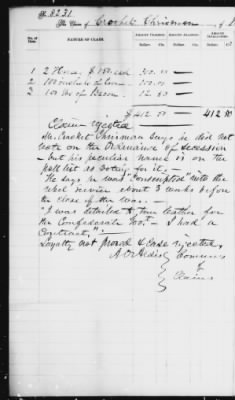 No. 8221.
The Claim of Crocket Chrisman of
No. NATURE OF CLAIM. AMOUNT CLAIMED. AMOUNT ALLOWED. AMOUNT DISALLOWED.
Dollars Cts. Dollars Cts. Dollars Cts.
1 2 Horses, $150 each 300.00 —
2 100 bushels of Corn — 100.00 —
3 100 lbs of Bacon — 12.50 —
$412.50 — 412.50
Claim rejected
Mr. Crocket Chrisman says he did not
vote on the Ordinance of Secession
— but his peculiar name is on the
poll list as voting for it. —
He says he was "conscripted" into the
rebel service about 3 weeks before
the close of the war. —
"I was detailed to tan leather for
the Confederate Gov't — I had a
Contract." —
Loyalty not proved & Case rejected,
A. O. Aldis Commrs
of
Claims